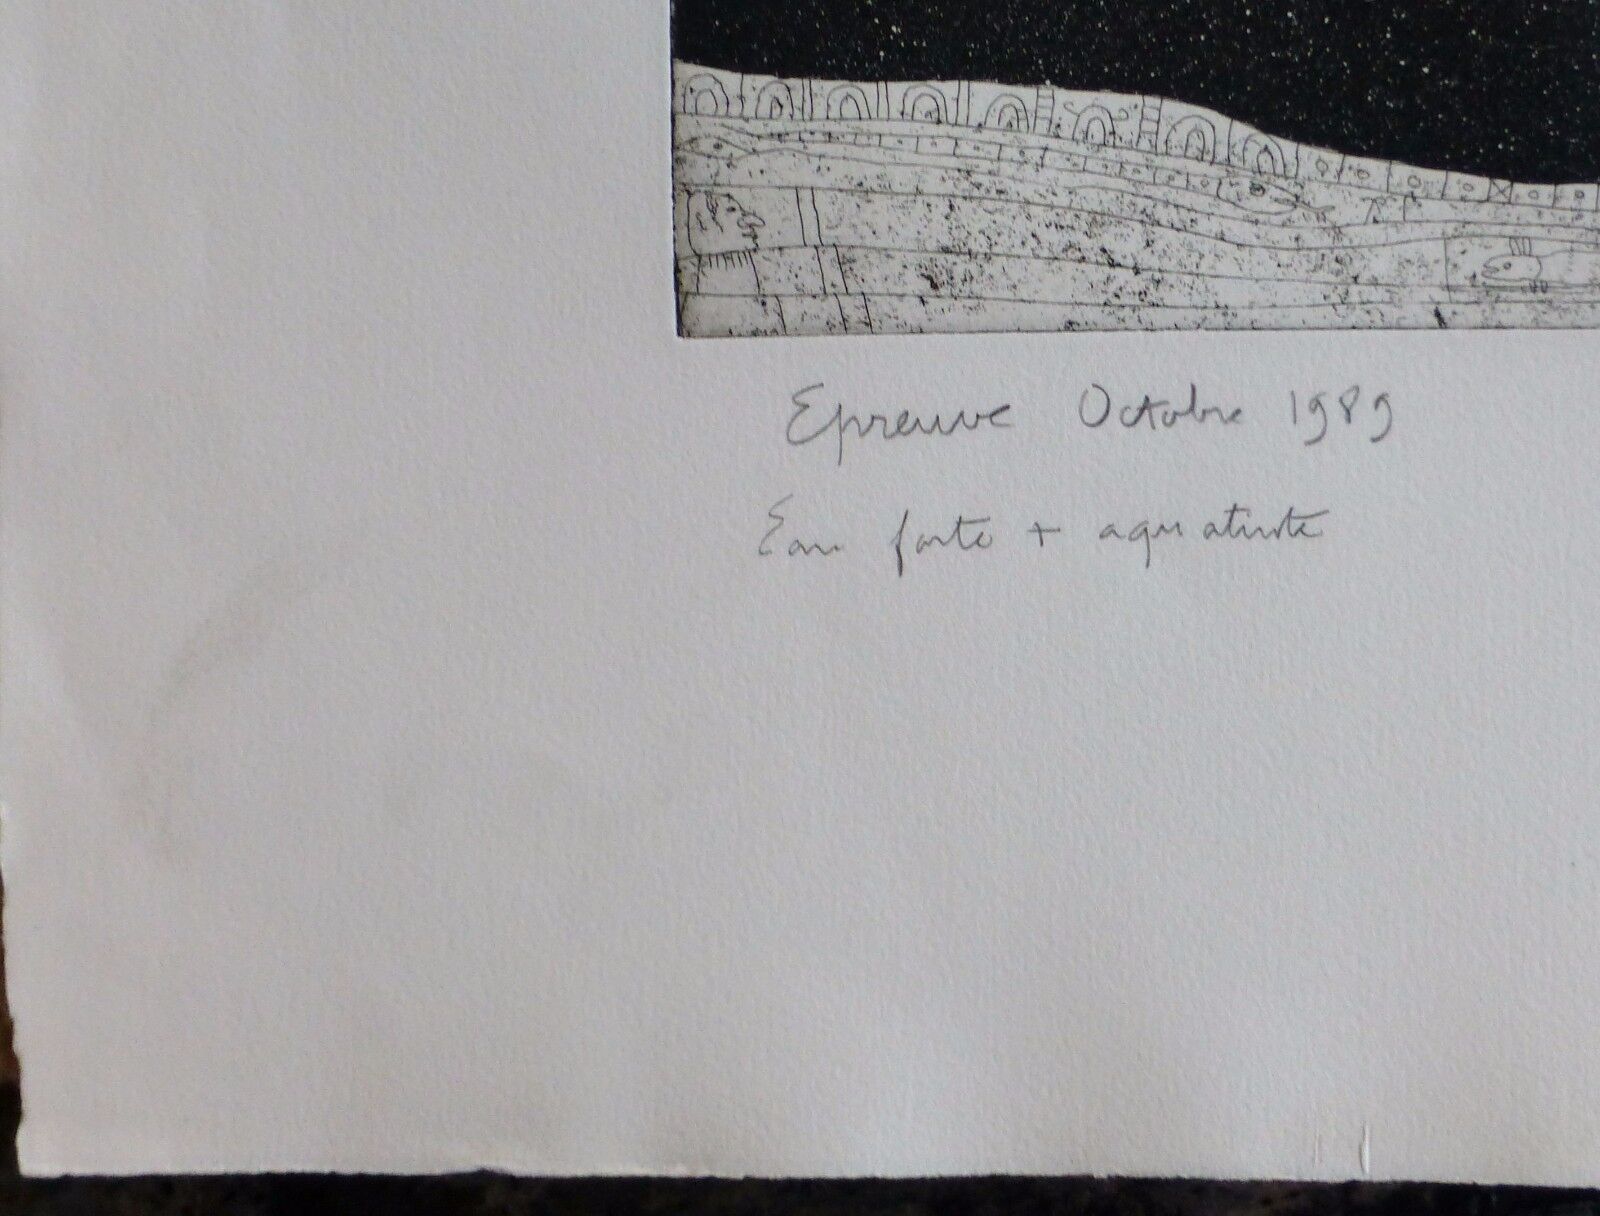 Epreuve Octobre 1989
Eau forte + aquatinte